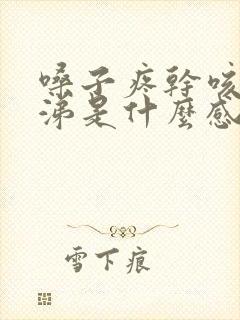 嗓子疼幹咳
涕是什麼感
雪下痕